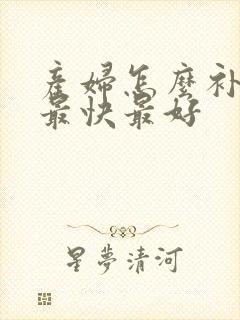 產婦怎麼补
最快最好
星夢清河